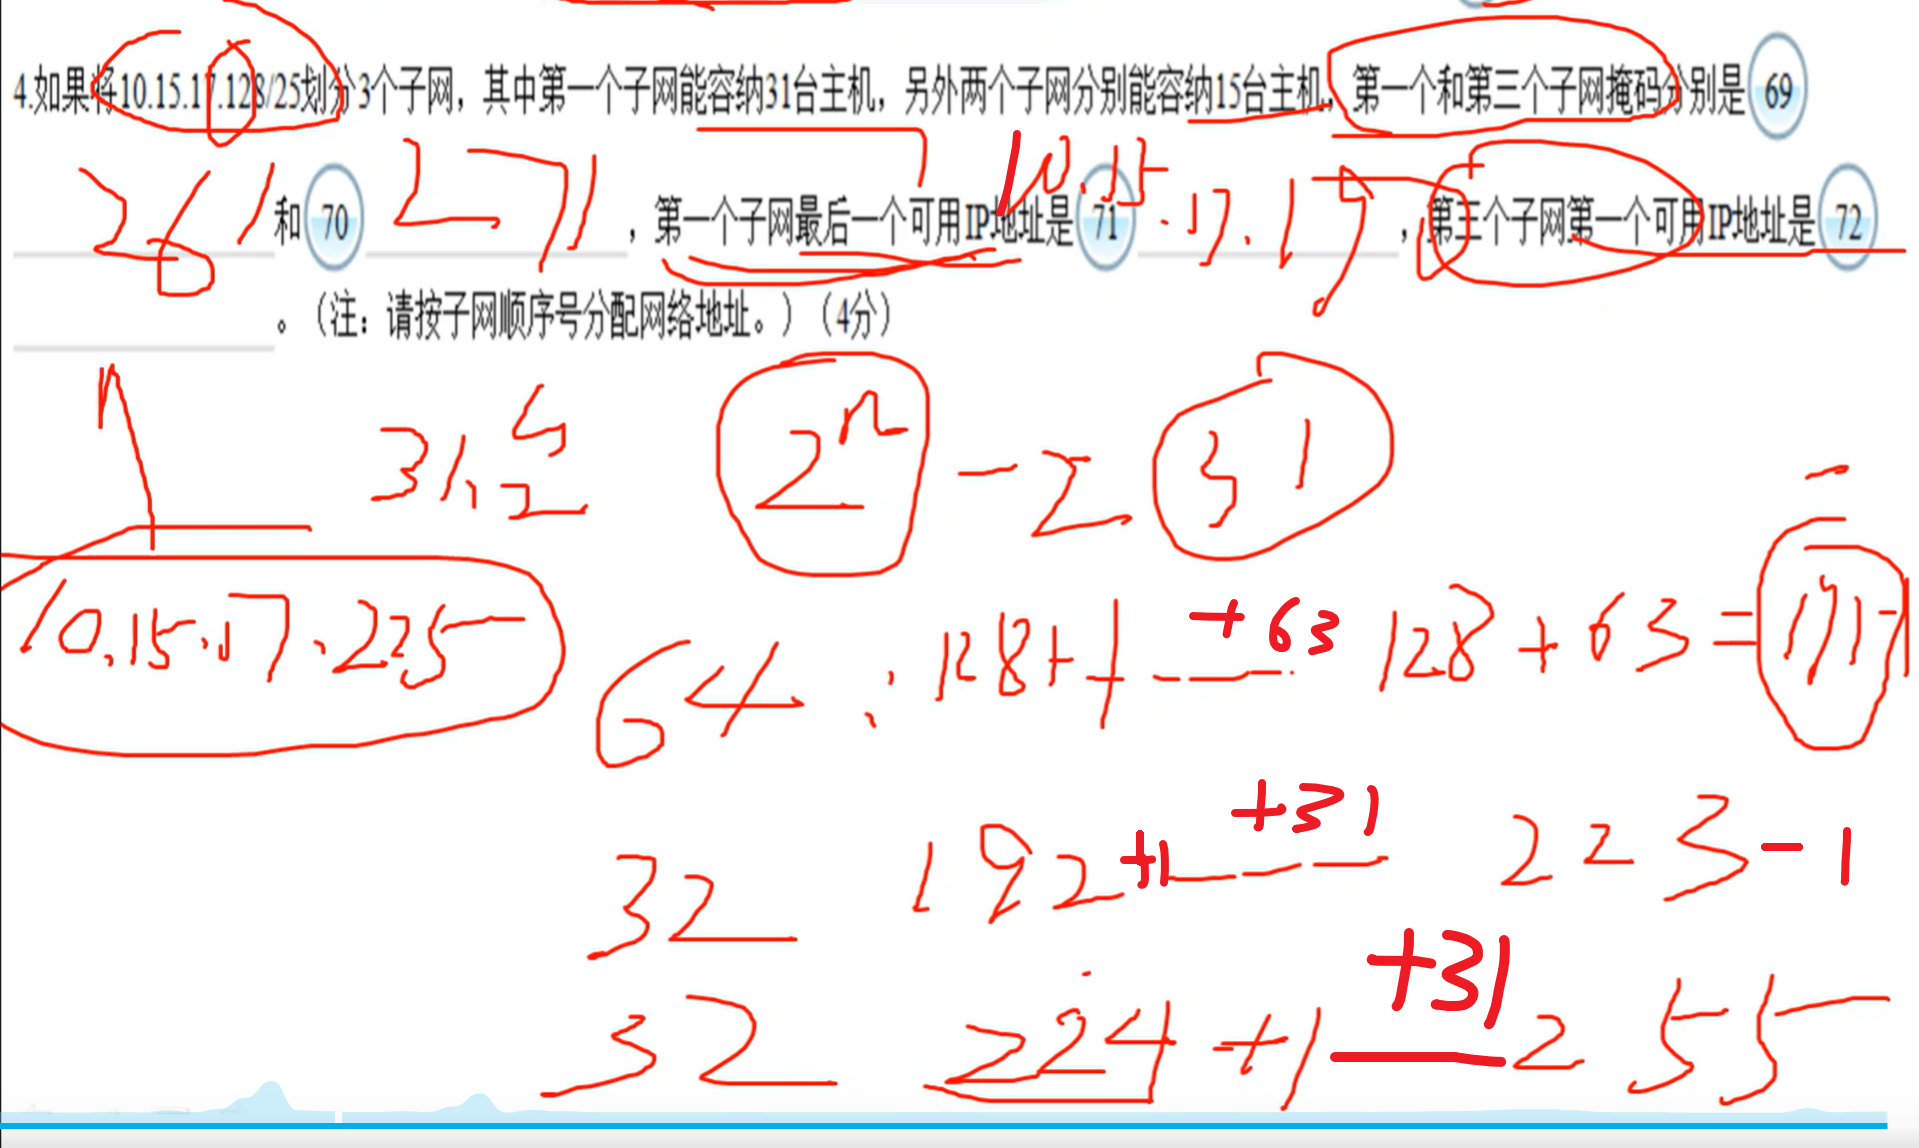 4.如果将10.15.17.128/25划分3个子网，其中第一个子网能容纳31台主机，另外两个子网分别能容纳15台主机，第一个和第三个子网掩码分别是 69
和 70 ，第一个子网最后一个可用IP地址是 71 ，第三个子网第一个可用IP地址是 72
。（注：请按子网顺序号分配网络地址。）（4分）
10.15.17.19
2^n - 2 31
10.15.17.225
64 : 128+1 +63 128+63=191
32 192+1 +31 223-1
32 224+1 +31 255